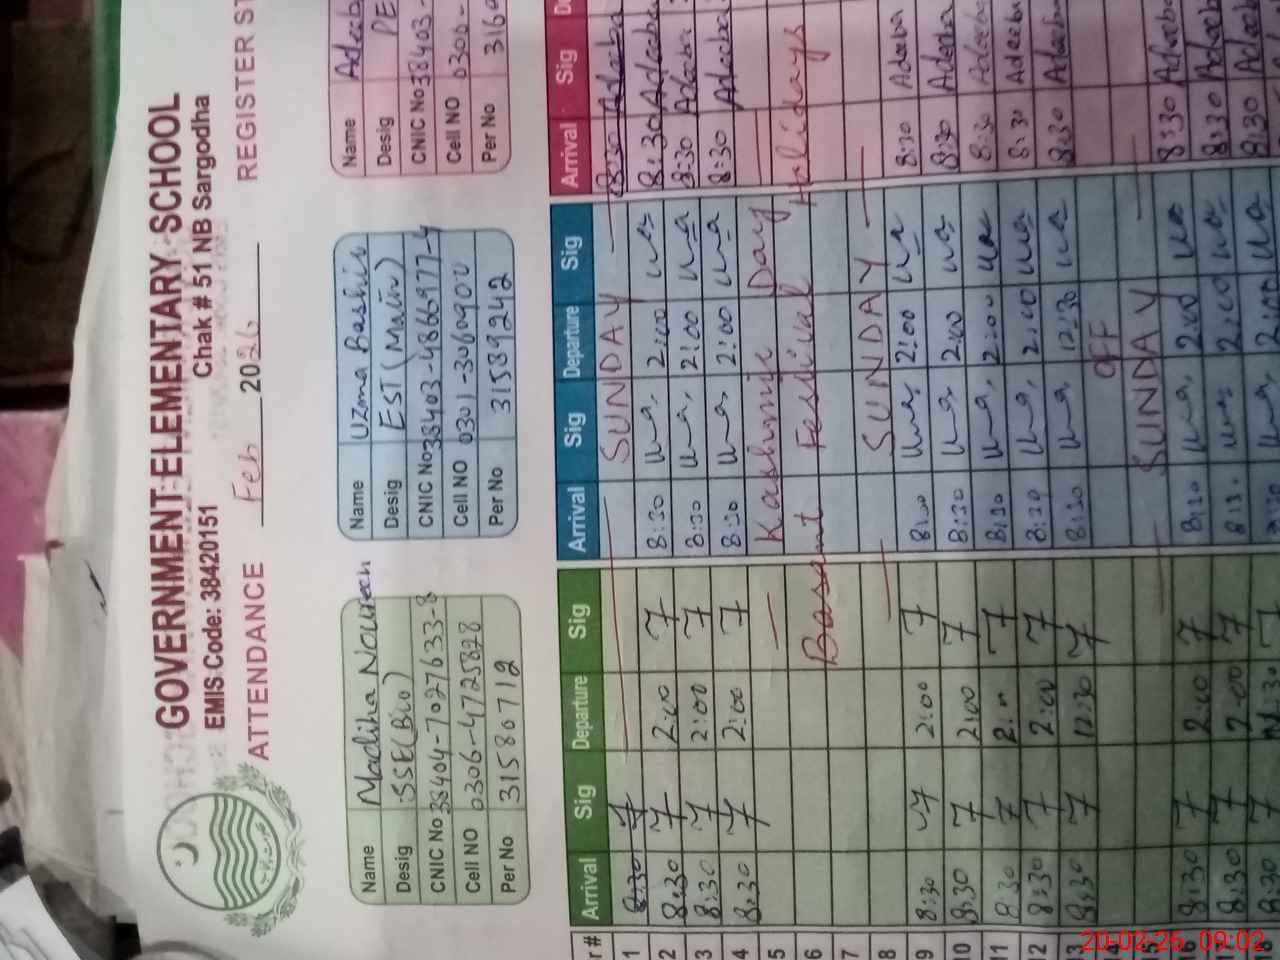 GOVERNMENT ELEMENTARY SCHOOL
EMIS Code: 38420151 Chak # 51 NB Sargodha
ATTENDANCE Feb 2026 REGISTER
Name Madiha Noureen
Desig SSE(Bio)
CNIC No 38404-7027633-8
Cell NO 0306-4725828
Per No 31580712
Name Uzma Bashir
Desig EST (Math)
CNIC No 38403-4866977-4
Cell NO 0301-3060900
Per No 31589242
Name Adeeba
Desig
CNIC No 38403-
Cell NO 0306-
Per No 316
r # Arrival Sig Departure Sig Arrival Sig Departure Sig Arrival Sig
1 8:30 7 SUNDAY 8:30 Adeeba
2 8:30 7 2:00 7 8:30 ua 2:00 ua 8:30 Adeeba
3 8:30 7 2:00 7 8:30 ua 2:00 ua 8:30 Adeeba
4 8:30 7 2:00 7 8:30 ua 2:00 ua 8:30 Adeeba
5 Kashmir Day
6 Basant Festival Holidays
7
8 SUNDAY
9 8:30 7 2:00 7 8:30 ua 2:00 ua 8:30 Adeeba
10 8:30 7 2:00 7 8:30 ua 2:00 ua 8:30 Adeeba
11 8:30 7 7 8:30 ua 2:00 ua 8:30 Adeeba
12 8:30 7 2:00 7 8:30 ua 2:00 ua 8:30 Adeeba
13 8:30 7 12:30 7 8:30 ua 12:30 ua 8:30 Adeeba
14 OFF
15 SUNDAY
16 8:30 7 2:00 7 8:30 ua 2:00 ua 8:30 Adeeba
17 8:30 7 2:00 7 ua 2:00 ua 8:30 Adeeba
18 8:30 7 7 ua 2:00 ua 8:30 Adeeba
20-02-26 09:02